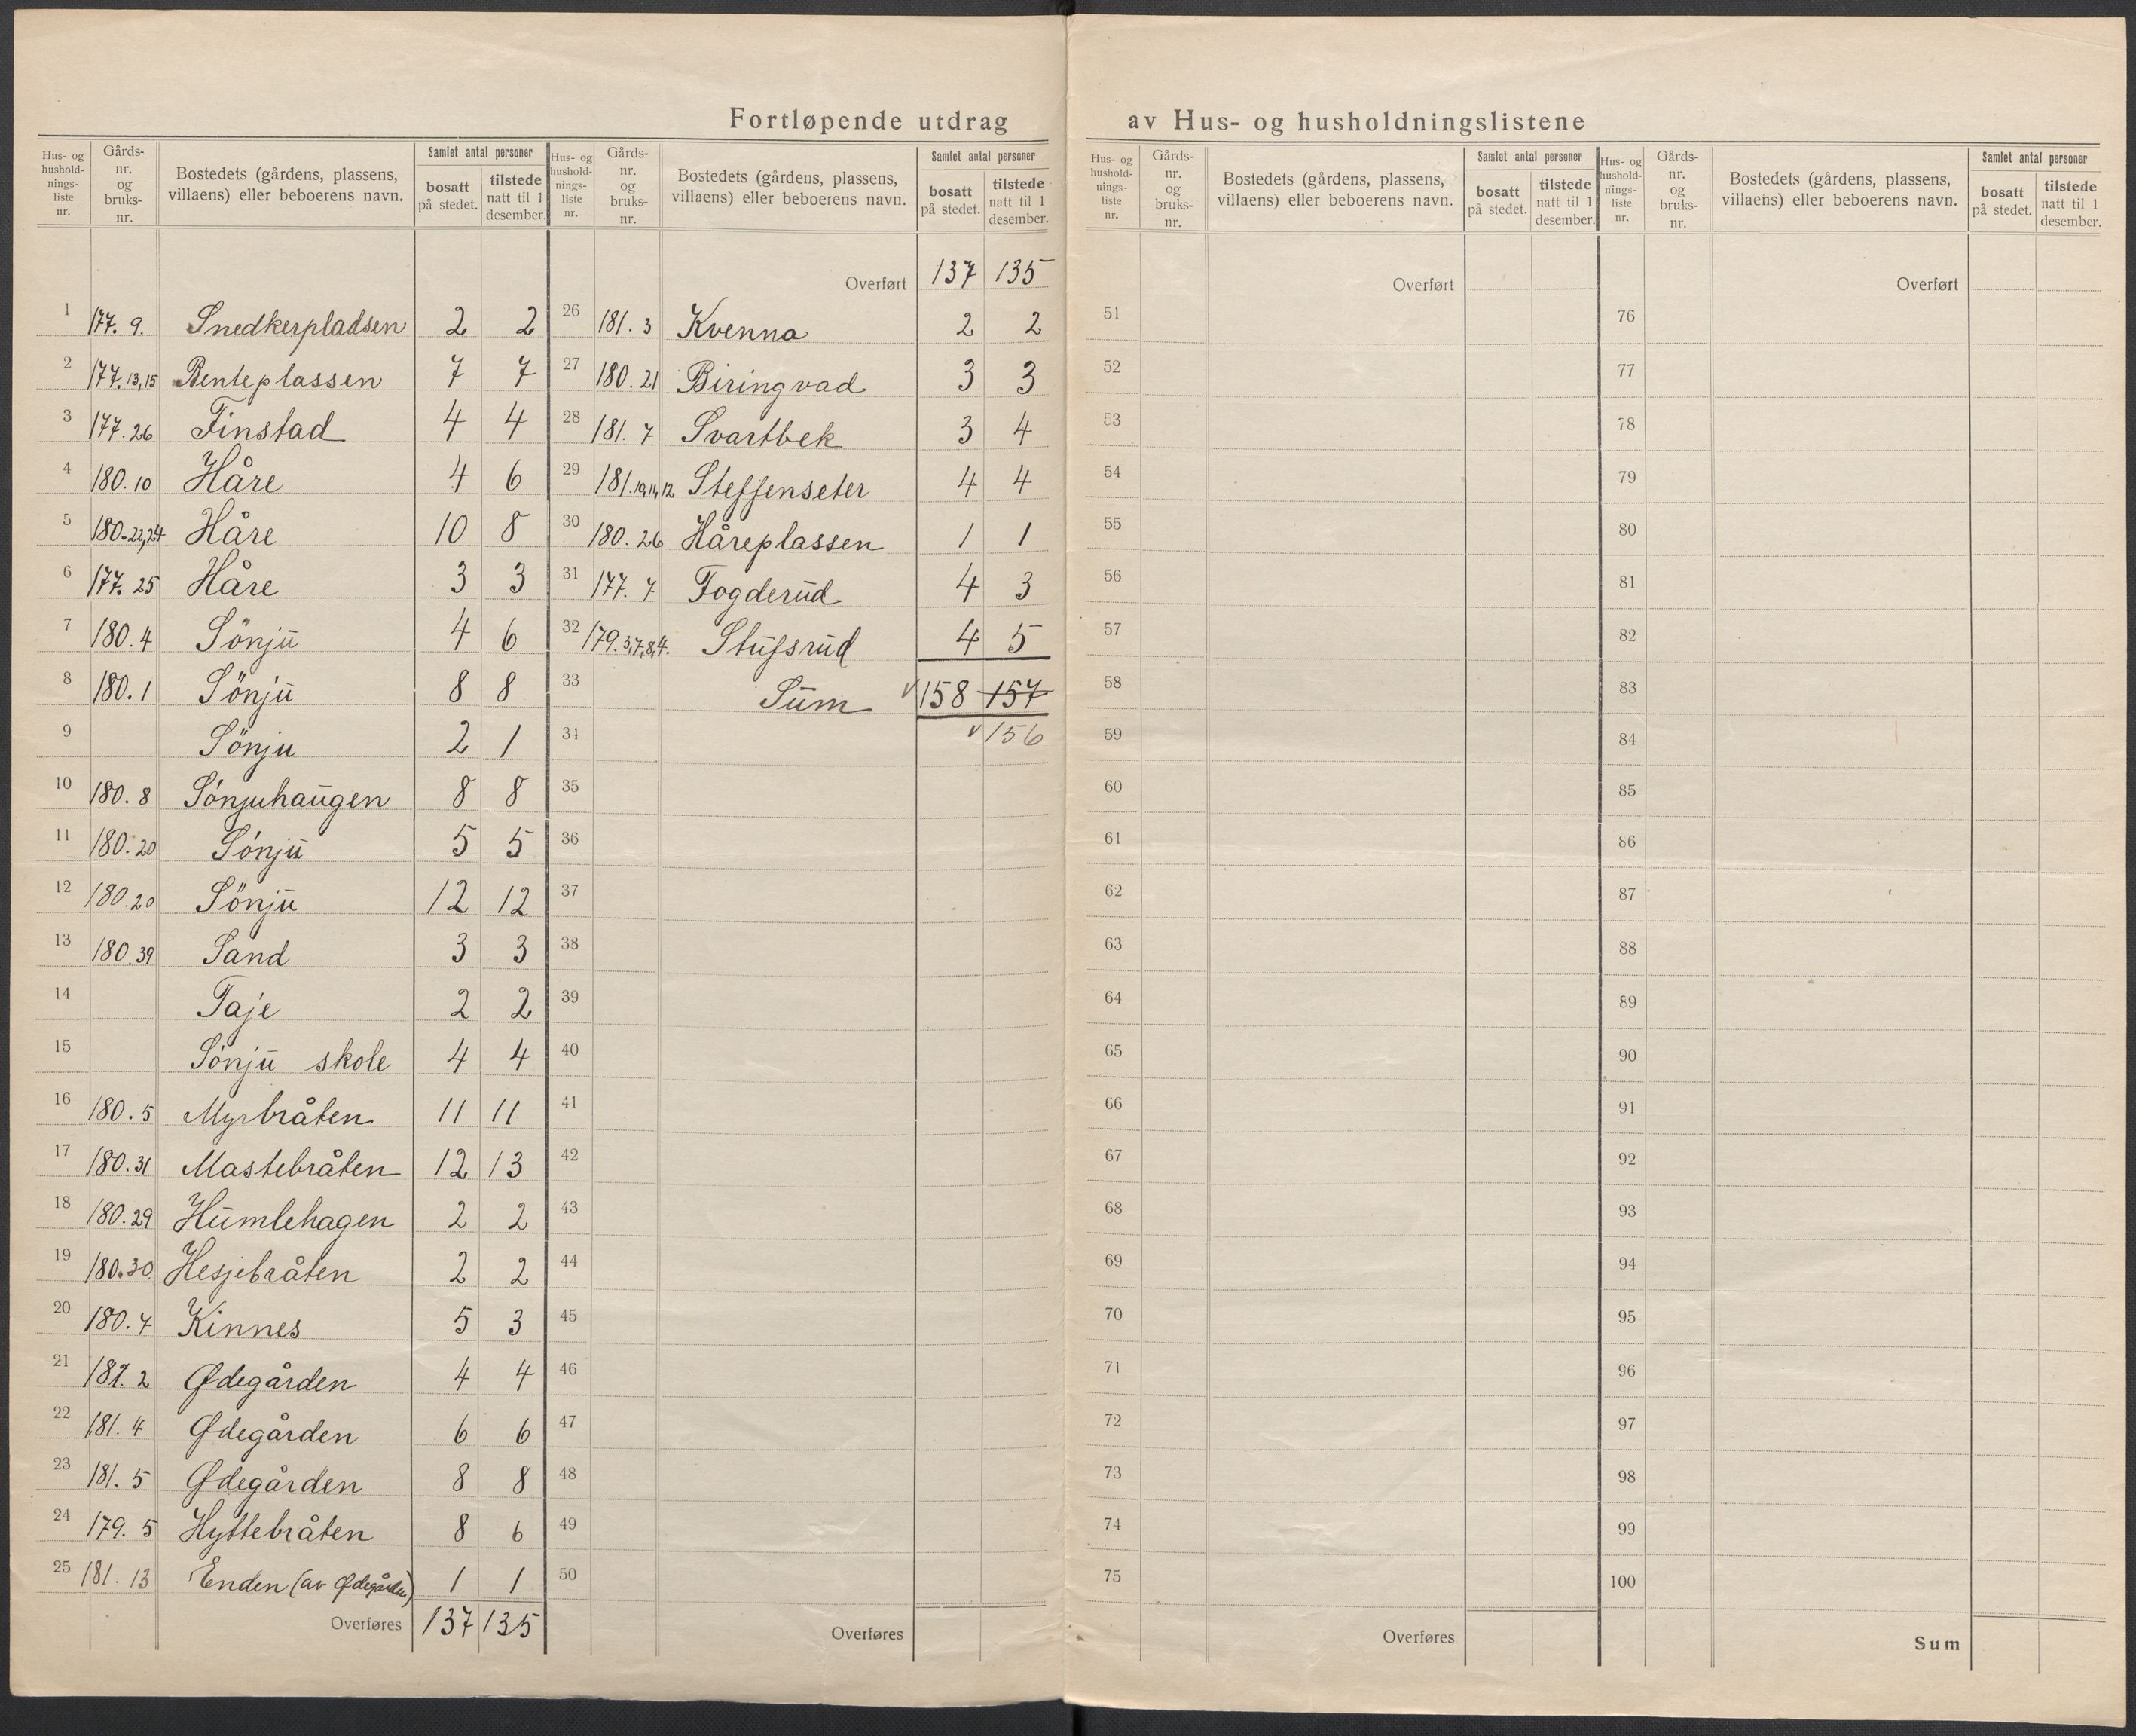 Fortløpende utdrag av Hus- og husholdningslistene
Hus- og hushold-nings-liste nr. | Gårds-nr. og bruks-nr. | Bostedets (gårdens, plassens, villaens) eller beboerens navn. | Samlet antal personer | bosatt på stedet. | tilstede natt til 1 desember.
1 177. 9. Snedkerpladsen 2 2
2 177. 13,15 Benteplassen 7 7
3 177. 26 Finstad 4 4
4 180. 10 Håre 4 6
5 180. 22,24 Håre 10 8
6 177. 25 Håre 3 3
7 180. 4 Sönjŭ 4 6
8 180. 1 Sönjŭ 8 8
9 Sönju 2 1
10 180. 8 Sönjuhaŭgen 8 8
11 180. 20 Sönjŭ 5 5
12 180. 20 Sönjŭ 12 12
13 180. 39 Sand 3 3
14 Taje 2 2
15 Sönjŭ skole 4 4
16 180. 5 Myrbråten 11 11
17 180. 31 Mastebråten 12 13
18 180. 29 Hŭmlehagen 2 2
19 180. 30 Hesjebråten 2 2
20 180. 7 Kinnes 5 3
21 181. 2 Ødegården 4 4
22 181. 4 Ødegården 6 6
23 181. 5 Ødegården 8 8
24 179. 5 Hyttebråten 8 6
25 181. 13 Enden (av Ødegården) 1 1
Overføres 137 135
Hus- og hushold-nings-liste nr. | Gårds-nr. og bruks-nr. | Bostedets (gårdens, plassens, villaens) eller beboerens navn. | Samlet antal personer | bosatt på stedet. | tilstede natt til 1 desember.
Overført 137 135
26 181. 3 Kvenna 2 2
27 180. 21 Biringvad 3 3
28 181. 7 Svartbek 3 4
29 181. 10,11,12 Steffenseter 4 4
30 180. 26 Håreplassen 1 1
31 177. 7 Fogderŭd 4 3
32 179. 3,7,8,4. Stŭfsrŭd 4 5
33 Sŭm ✓158 157
34 ✓156
35
36
37
38
39
40
41
42
43
44
45
46
47
48
49
50
Overføres
Hus- og hushold-nings-liste nr. | Gårds-nr. og bruks-nr. | Bostedets (gårdens, plassens, villaens) eller beboerens navn. | Samlet antal personer | bosatt på stedet. | tilstede natt til 1 desember.
Overført
51
52
53
54
55
56
57
58
59
60
61
62
63
64
65
66
67
68
69
70
71
72
73
74
75
Overføres
Hus- og hushold-nings-liste nr. | Gårds-nr. og bruks-nr. | Bostedets (gårdens, plassens, villaens) eller beboerens navn. | Samlet antal personer | bosatt på stedet. | tilstede natt til 1 desember.
Overført
76
77
78
79
80
81
82
83
84
85
86
87
88
89
90
91
92
93
94
95
96
97
98
99
100
Sum